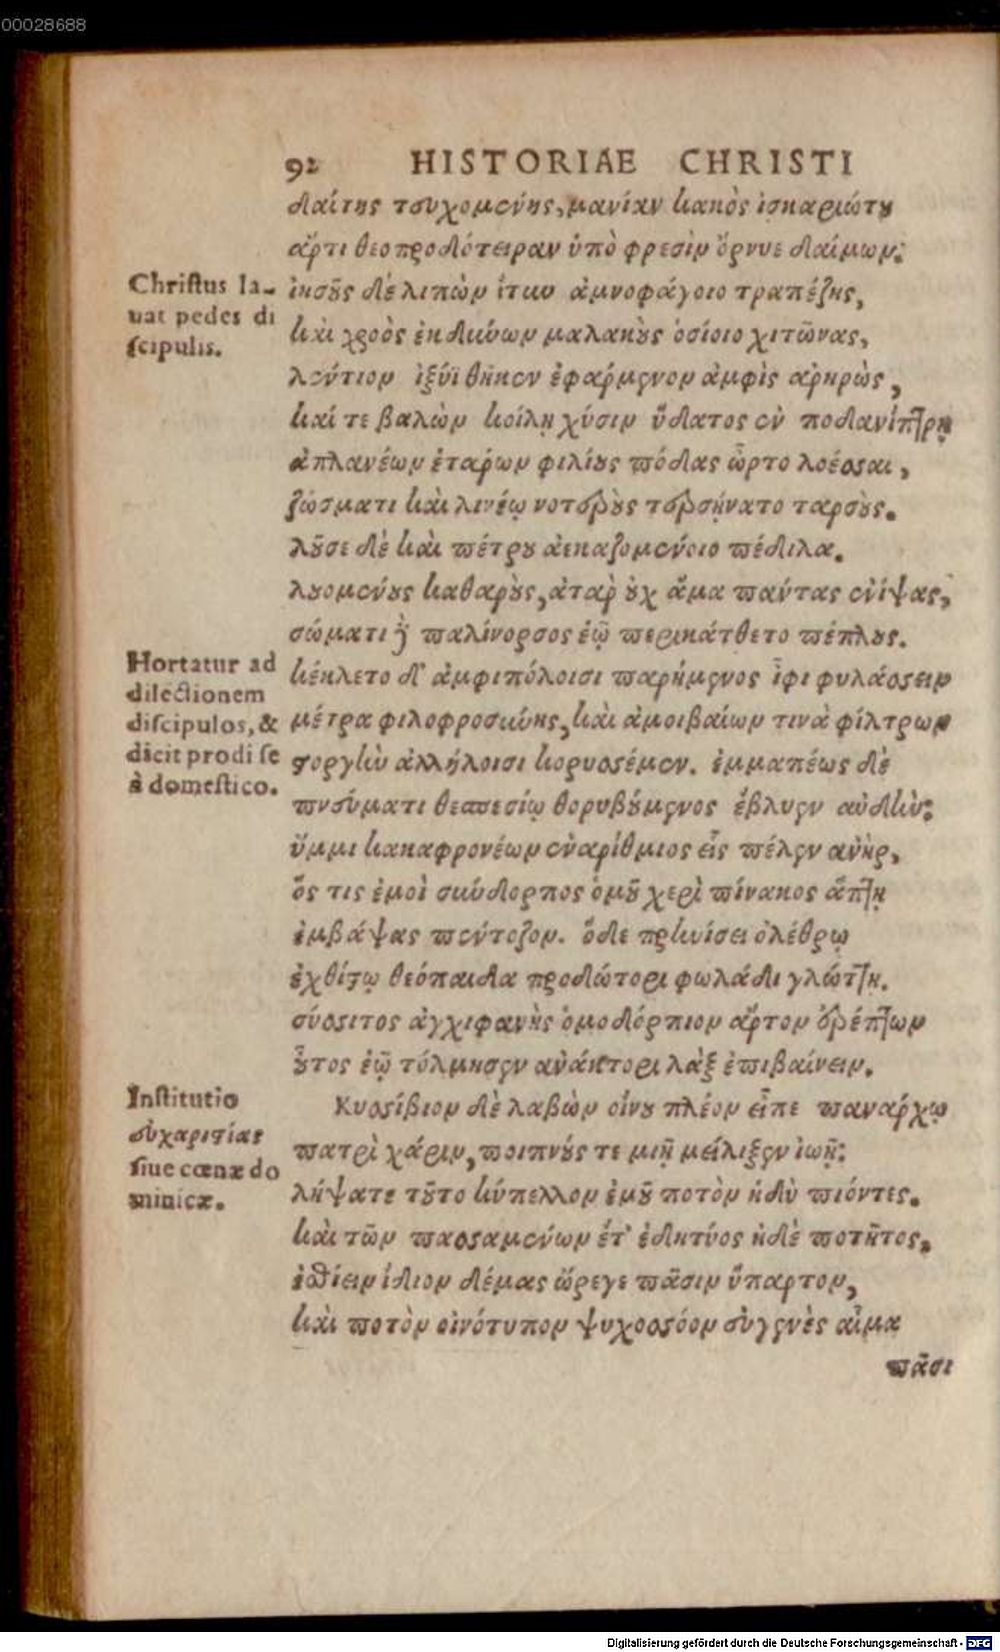 00028688
92 HISTORIAE CHRISTI
δαίτης τευχομένης, μανίαν κακὸς ἰσκαριώτου
ἄρτι θεοπροδότειραν ὑπὸ φρεσὶν ὄρνυε δαίμων:
Christus la-
uat pedes di
scipulis.
ἰησοῦς δὲ λιπὼν ἴτυν ἀμνοφάγοιο τραπέζης,
καὶ χροὸς ἐκδύνων μαλακοὺς ὁσίοιο χιτῶνας,
λέντιον ἰξύϊ θῆκεν ἐφαρμένον ἀμφὶς ἀρηρὼς,
καί τε βαλὼν κοίλῃ χύσιν ὕδατος ἐν ποδανίπτρῃ
ἀπλανέων ἑτάρων φιλίους πόδας ὦρτο λοέσσαι,
ζώσματι καὶ λινέῳ νοτεροὺς τερσῄνατο ταρσούς.
λῦσε δὲ καὶ πέτρου ἀεκαζομένοιο πέδιλα.
λουομένους καθαροὺς, ἀτὰρ οὐχ ἅμα πάντας ἐνίψας,
σώματι γὰρ παλίνορσος ἑῷ περικάτθετο πέπλους.
Hortatur ad
dilectionem
discipulos, &
dicit prodi se
à domestico.
κέκλετο δ' ἀμφιπόλοισι παρήμενος ἶφι φυλάσσειν
μέτρα φιλοφροσύνης, καὶ ἀμοιβαίων τινὰ φίλτρων
στοργὴν ἀλλήλοισι κορυσσέμεν. ἐμμαπέως δὲ
πνεύματι θεσπεσίῳ θορυβούμενος ἔβλυεν αὐδήν:
ὔμμι κακαφρονέων ἐναρίθμιος εἷς πέλεν ἀνὴρ,
ὅς τις ἐμοὶ σύνδορπος ὁμοῦ χερὶ πίνακος ἅπτῃ
ἐμβάψας πέντοζον. ὅδε πρηνίσει ὀλέθρῳ
ἐχθίστῳ θεόπαιδα προδώτορι φωλάδι γλώττῃ.
σύσσιτος ἀγχιφανὴς ὁμοδόρπιον ἄρτον ἐρέπτων
οὗτος ἑῷ τόλμησεν ἀνάκτορι λὰξ ἐπιβαίνειν.
Institutio
εὐχαριστίας
siue cœnæ do
minicæ.
Κυσσίβιον δὲ λαβὼν οἴνου πλέον εἶπε πανάρχῳ
πατρὶ χάριν, ποιπνούς τε μιῇ μείλιξεν ἰωῇ:
λήψατε τοῦτο κύπελλον ἐμοῦ ποτὸν ἡδὺ πιόντες.
καὶ τῶν πασσαμένων ἔτ' ἐδητύος ἠδὲ ποτῆτος,
ἐσθίειν ἴδιον δέμας ὤρεγε πᾶσιν ὕπαρτον,
καὶ ποτὸν οἰνότυπον ψυχοσσόον εὐγενὲς αἷμα
πᾶσι
Digitalisierung gefördert durch die Deutsche Forschungsgemeinschaft - DFG